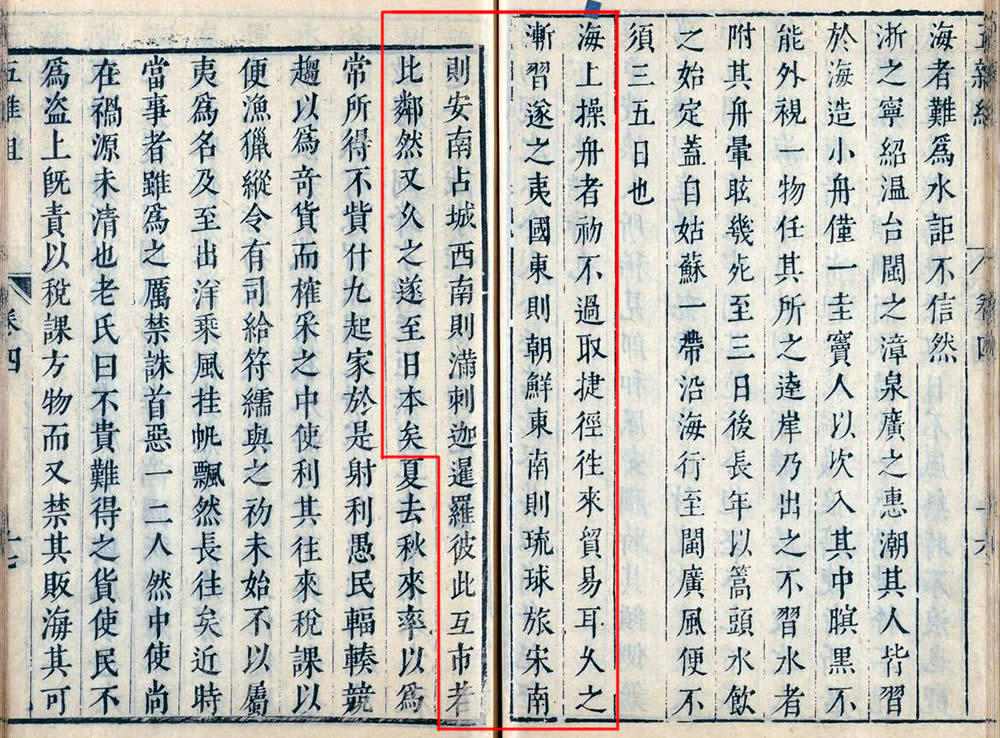 五雜組 卷四 十六
海者難爲水詎不信然
浙之寧紹溫台閩之漳泉廣之惠潮其人皆習
於海造小舟僅一圭竇人以次入其中瞑黑不
能外視一物任其所之達岸乃出之不習水者
附其舟暈眩幾死至三日後長年以篙頭水飲
之始定蓋自姑蘇一帶沿海行至閩廣風便不
須三五日也
海上操舟者初不過取捷徑往來貿易耳久之
漸習遂之夷國東則朝鮮東南則琉球旅宋南
則安南占城西南則滿剌迦暹羅彼此互市若
比鄰然又久之遂至日本矣夏去秋來率以爲
常所得不貲什九起家於是射利愚民輻輳競
趨以爲奇貨而榷采之中使利其往來稅課以
便漁獵縱令有司給符繻與之初未始不以屬
夷爲名及至出洋乘風挂帆飄然長往矣近時
當事者雖爲之厲禁誅首惡一二人然中使尚
在禍源未清也老氏曰不貴難得之貨使民不
爲盗上旣責以稅課方物而又禁其販海其可
五雜組 卷四 十七